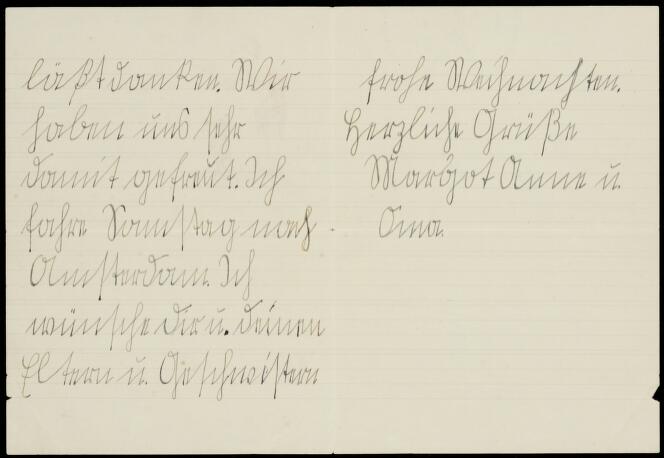 läßt danken. Wir
haben uns sehr
damit gefreut. Ich
fahre Samstag nach
Amsterdam. Ich
wünsche dir u. deinen
Eltern u. Geschwistern
frohe Weihnachten.
Herzliche Grüße
Margot Anne u.
Oma.